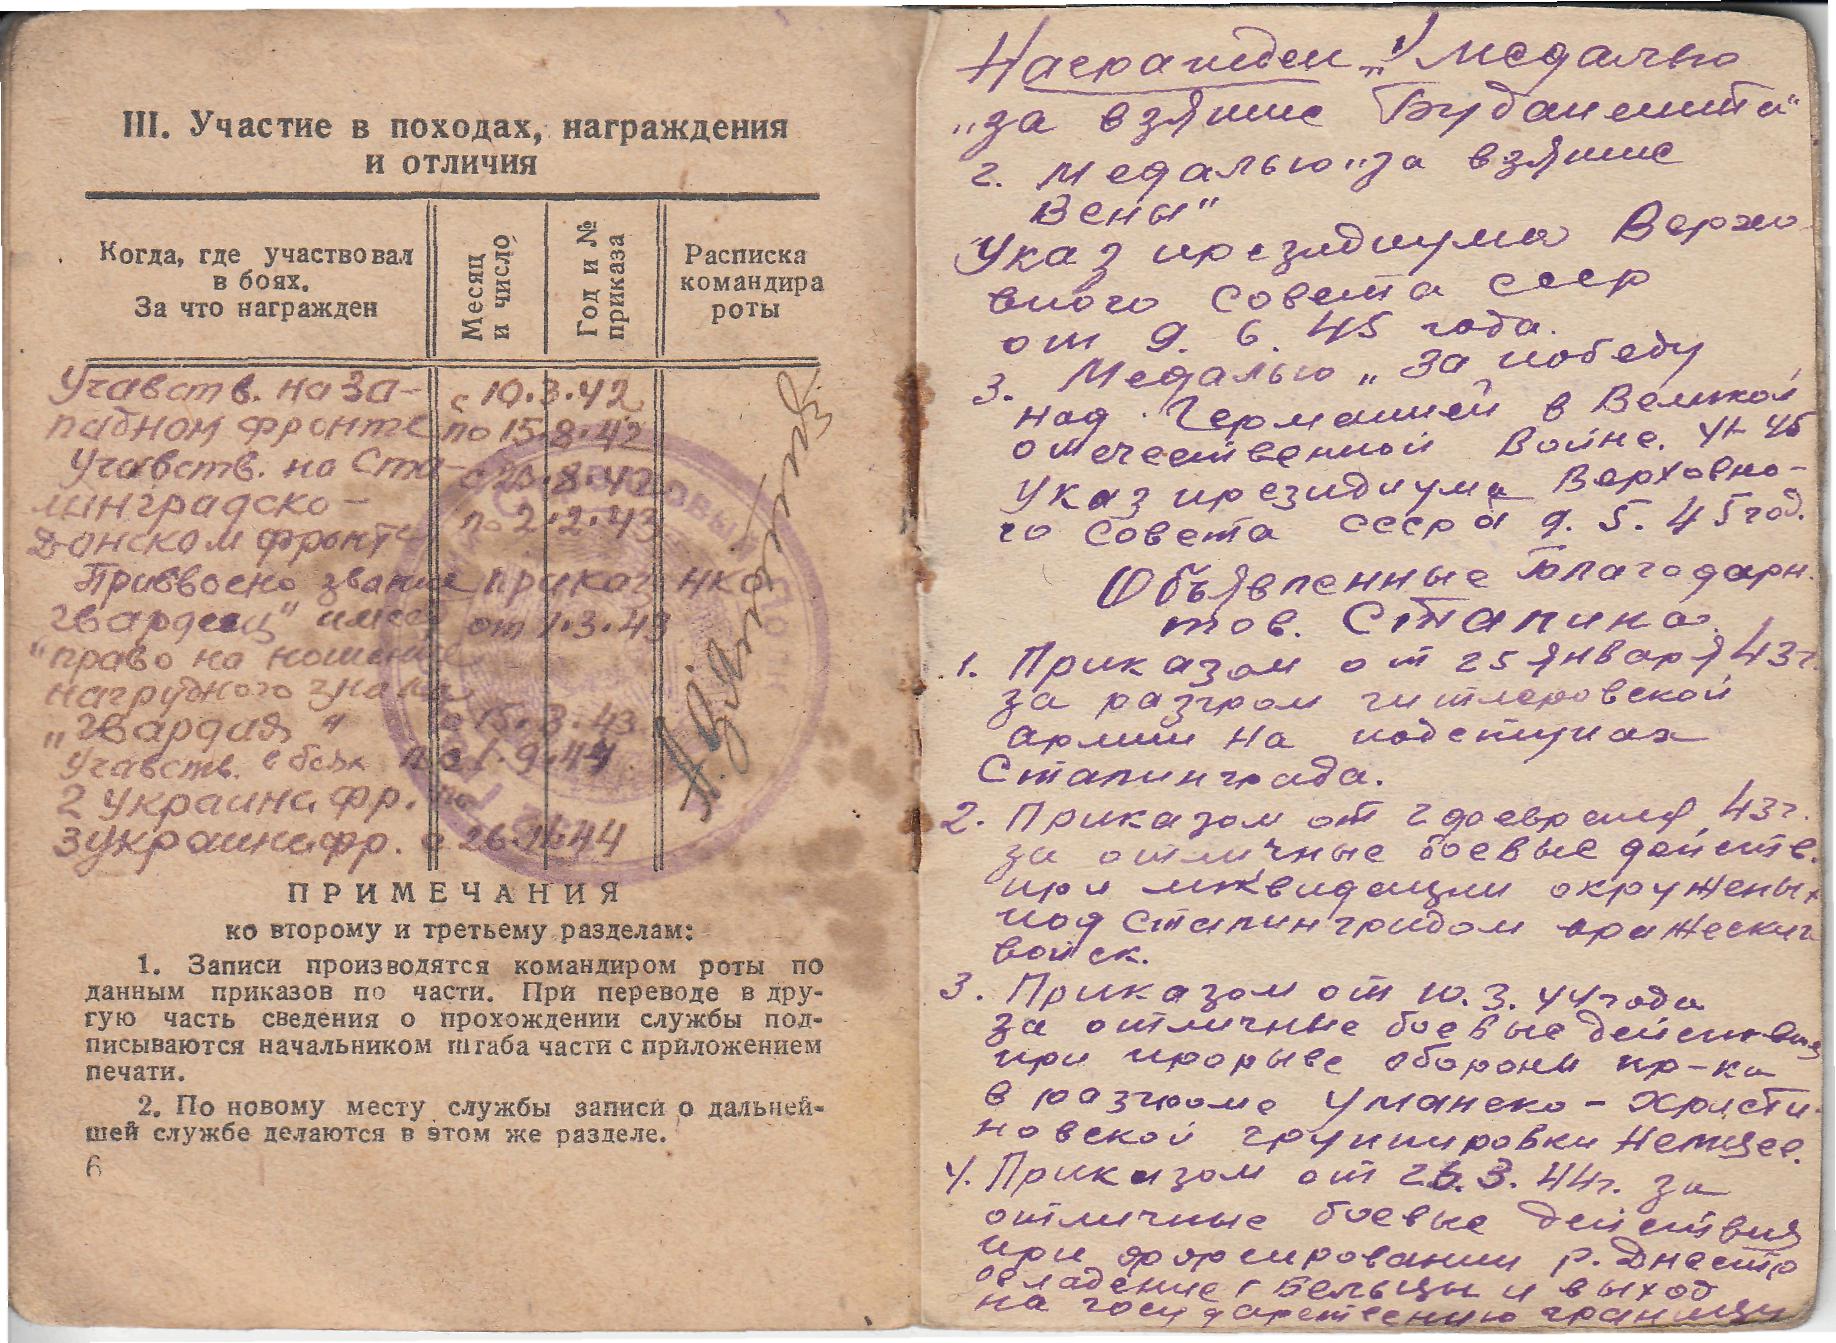 III. Участие в походах, награждения
и отличия
Когда, где участвовал
в боях.
За что награжден
Месяц
и число
Год и №
приказа
Расписка
командира
роты
Учавств. на За-
падном фронте
с 10.3.42
по 15.8.42
Учавств. на Ста-
линградско-
Донском фронте
с 20.8.42
по 2.2.43
Присвоено звание
приказ НКО
гвардеец" имеет
от 1.3.43
"право на ношение
нагрудного знака
"Гвардия"
с 15.3.43
Учавств. в боях
по 1.9.44
2 Украина фр.
3 украин фр. с 26.11.44
ПРИМЕЧАНИЯ
ко второму и третьему разделам:
1. Записи производятся командиром роты по
данным приказов по части. При переводе в дру-
гую часть сведения о прохождении службы под-
писываются начальником штаба части с приложением
печати.
2. По новому месту службы записи о дальней-
шей службе делаются в этом же разделе.
6
Награжден 1 медалью
"за взятие Будапешта"
2. Медалью "за взятие
Вены"
Указ президиума Верхо
вного Совета ссср
от 9. 6. 45 года.
3. Медалью "За победу
над Германией в Великой
отечественной Войне.
Указ президиума Верховно-
го Совета ссср от 9.5.45 год.
Объявленные благодарн.
тов. Сталина.
1. Приказом от 25 Января 43 г.
за разгром гитлеровской
армии на подступах
Сталинграда.
2. Приказом от 2 февраля 43 г.
за отличные боевые действ.
при ликвидации окруженых
под Сталинградом вражеских
войск.
3. Приказом от 10.3.44 года
за отличные боевые действия
при прорыве обороны пр-ка
в разгроме Уманско-Христи-
новской группировки Немцев.
4. Приказом от 26.3.44 г. за
отличные боевые действия
при форсировании р. Днестр
овладение г Бельцы и выход
на государственную границу